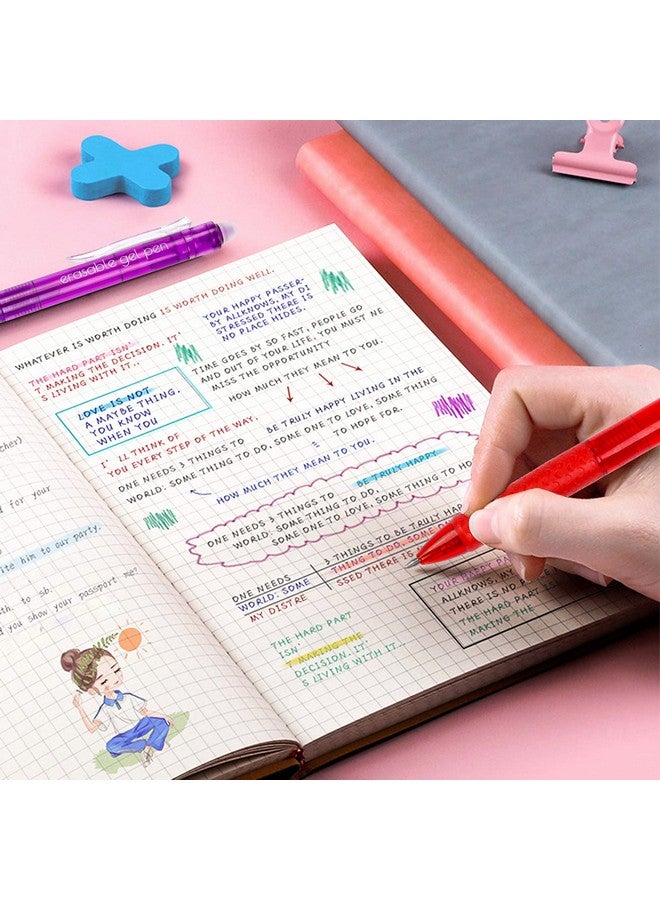 erasable gel pen
cher)
d for your
ite him to our party.
th. to sb.
d you show your passport me?
WHATEVER IS WORTH DOING IS WORTH DOING WELL.
THE HARD PART ISN'
T MAKING THE DECISION. IT'
S LIVING WITH IT...
YOUR HAPPY PASSER-
BY ALLKNOWS, MY DI
STRESSED THERE IS
NO PLACE HIDES.
TIME GOES BY SO FAST, PEOPLE GO
AND OUT OF YOUR LIFE. YOU MUST NE
MISS THE OPPORTUNITY
HOW MUCH THEY MEAN TO YOU.
LOVE IS NOT
A MAYBE THING,
YOU KNOW
WHEN YOU
I' LL THINK OF
YOU EVERY STEP OF THE WAY.
BE TRULY HAPPY LIVING IN THE
ONE NEEDS 3 THINGS TO
WORLD: SOME THING TO DO, SOME ONE TO LOVE, SOME THING
TO HOPE FOR.
HOW MUCH THEY MEAN TO YOU.
ONE NEEDS 3 THINGS TO BE TRULY HAPPY
WORLD: SOME THING TO DO,
SOME ONE TO LOVE, SOME THING TO HO
3 THINGS TO BE TRULY HAPP
ONE NEEDS THING TO DO, SOME ON
WORLD: SOME SSED THERE IS
MY DISTRE
YOUR HAPPY PA
ALLKNOWS, MY
THERE IS NO PLAC
THE HARD PART
MAKING THE
THE HARD PART
ISN'
T MAKING THE
DECISION. IT'
S LIVING WITH IT...